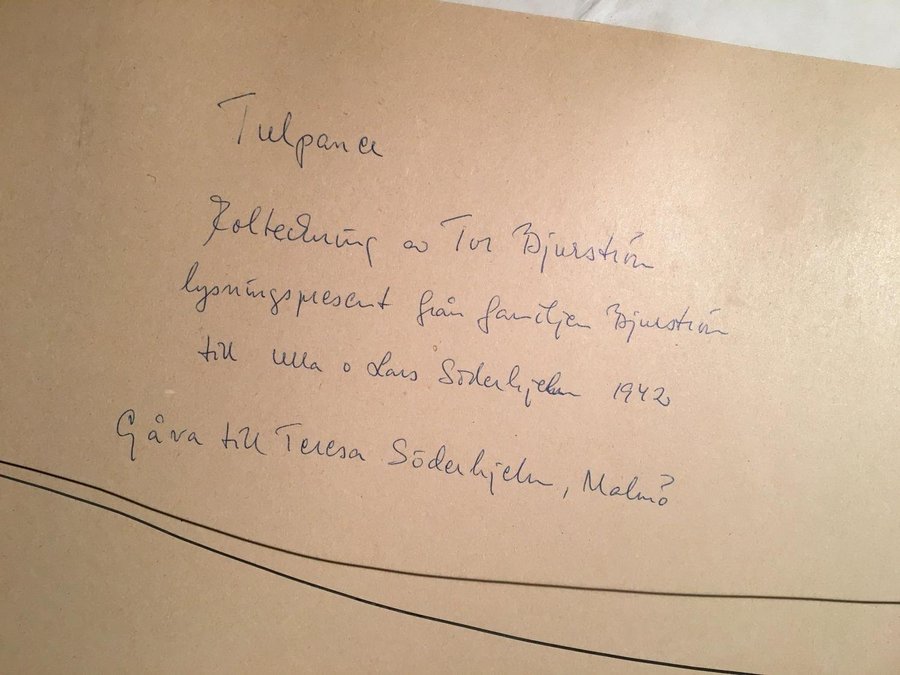 Tulpaner
Kolteckning av Tor Bjurström
lysningspresent från familjen Bjurström
till Ulla o Lars Söderhjelm 1942
Gåva till Teresa Söderhjelm, Malmö